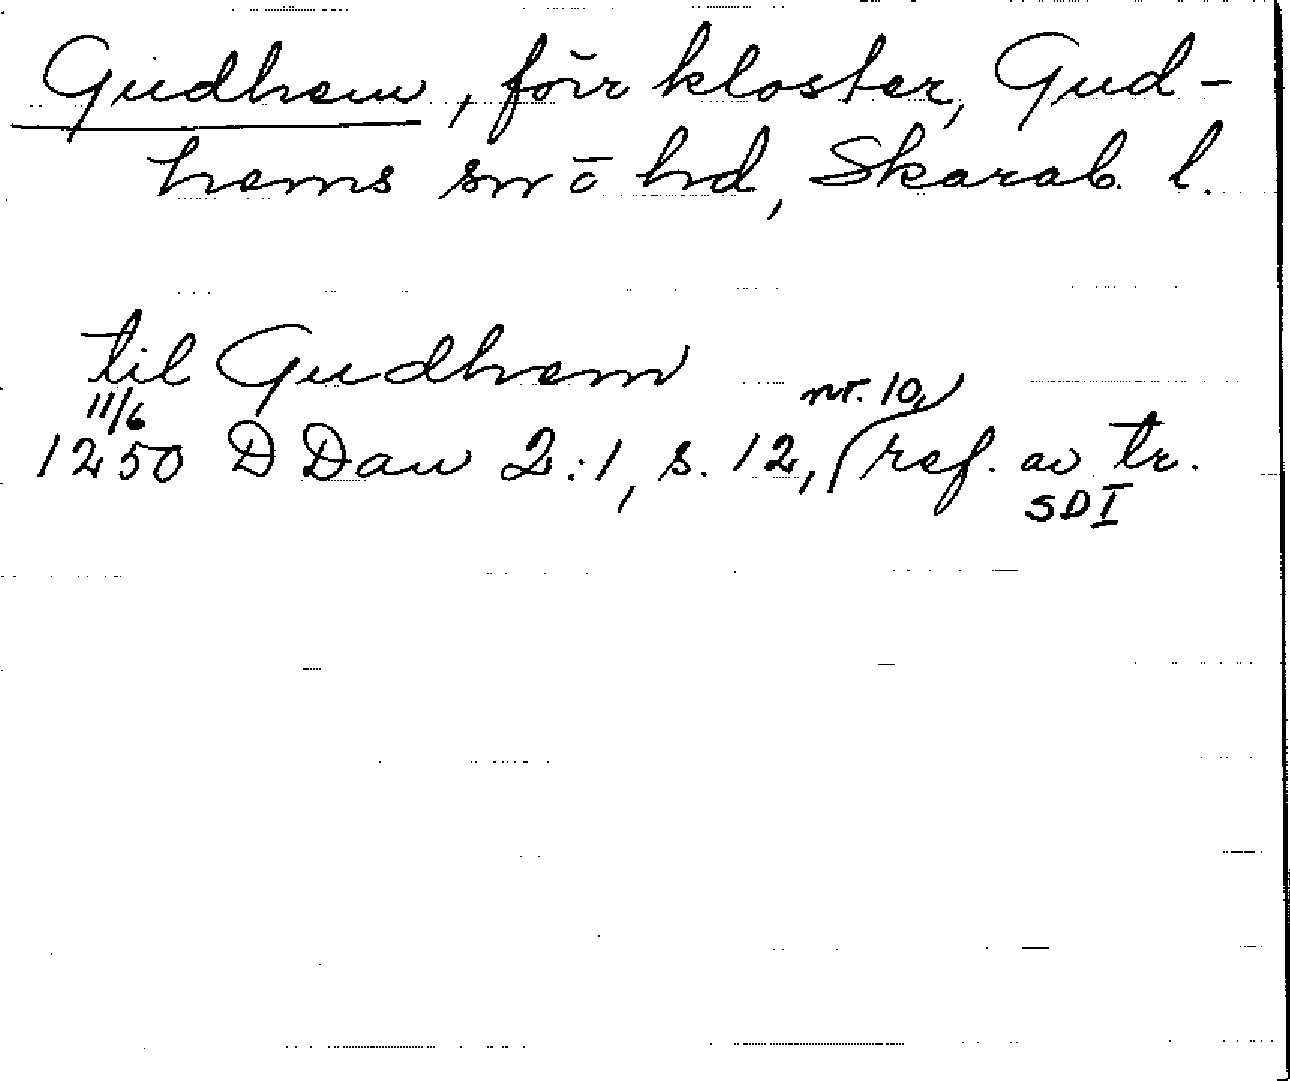 Gudhem, förr kloster, Gud-
hems sn o hd, Skarab. l.
til Gudhem
11/6 nr. 10,
1250 D Dan 2:1, s. 12, ref. av tr.
SD I